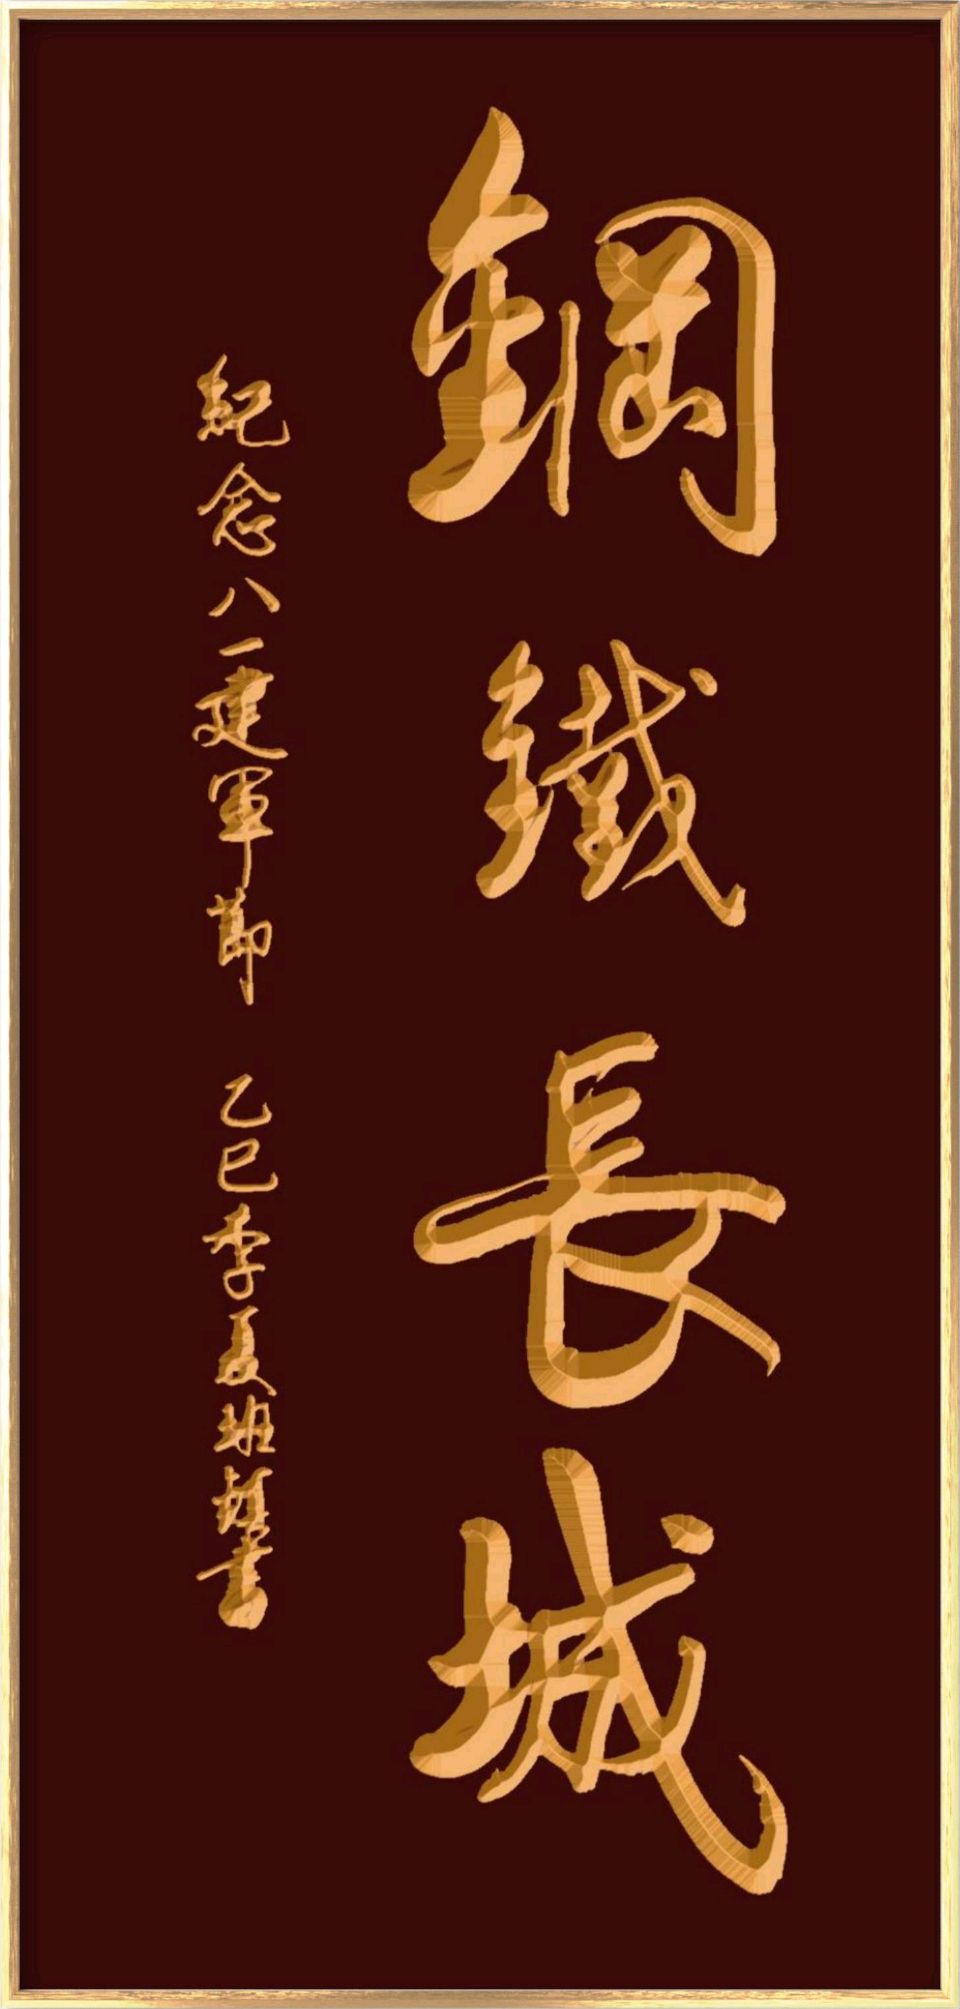 鋼鐵長城
紀念八一建軍節 乙巳季夏班超書